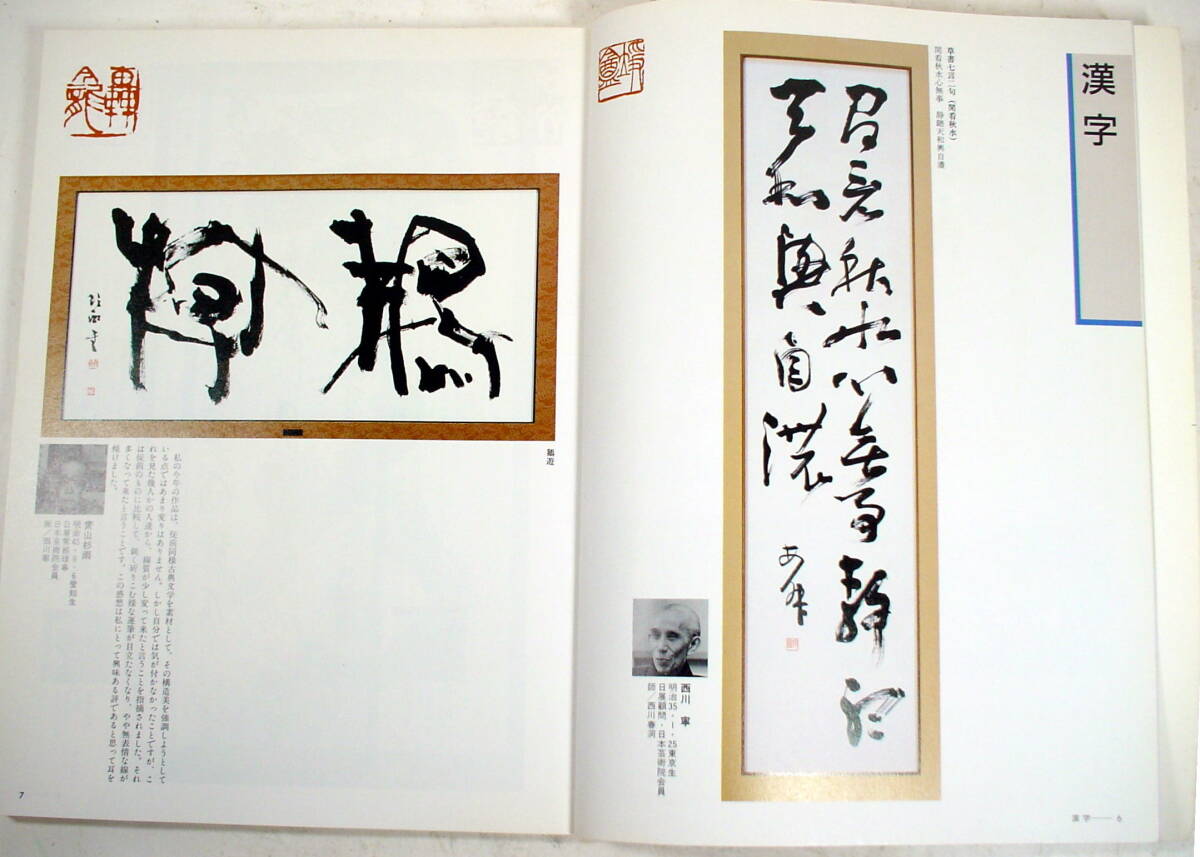 漢字
草書七言二句(閑看秋水)
閑看秋水心無事 静聴天和興自濃
看秋水心無事静聴
天和興自濃
西川 寧
明治35・1・25東京生
日展顧問・日本芸術院会員
師/西川春洞
漢字——6
私の今年の作品は、従前同様古典文学を素材として、その構造美を強調しようとして
いる点ではあまり変りはありません。しかし自分では気が付かなかったことですが、こ
れを見た幾人かの人達から、線質が少し変って来たと言うことを指摘されました。それ
は従前のものに比較して、鋭く斫りこむ様な運筆が目立たなくなり、やや無表情な線が
多くなって来たと言うことです。この感想は私にとって興味ある評であると思って耳を
傾けました。
青山杉雨
明治45・6・6愛知生
日展常務理事
日本芸術院会員
師/西川寧
7